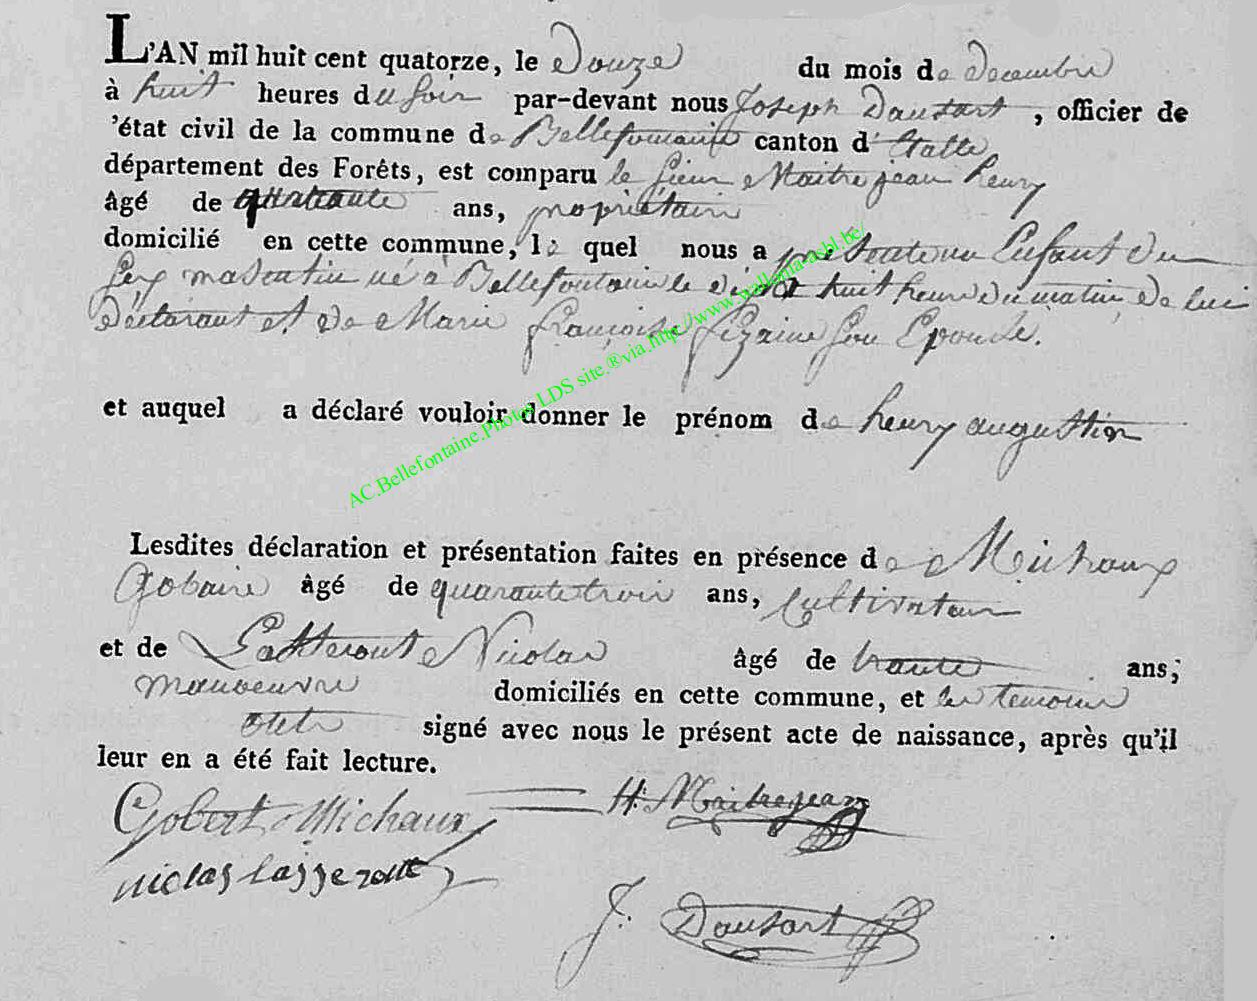 L'AN mil huit cent quatorze, le Douze du mois de Decembre
à huit heures du soir par-devant nous Joseph Dausart, officier de
'état civil de la commune de Bellefontaine canton d'Etalle
département des Forêts, est comparu le sieur Maitrejean henry
âgé de quarante ans, propriétaire
domicilié en cette commune, le quel nous a présenté un Enfant du
sex masculin né à Bellefontaine le huit heure du matin De lui
Déclarant et De Marie françoise fizaine son Epouse.
et auquel a déclaré vouloir donner le prénom de henry augustin
Lesdites déclaration et présentation faites en présence de Michaux
âgé de quarante trois ans, Cultivateur
et de Lasseront Nicolas âgé de trante ans;
manoeuvre domiciliés en cette commune, et les temoins
ont signé avec nous le présent acte de naissance, après qu'il
leur en a été fait lecture.
Gobert Michaux H: Maitrejean
niclas lasseront
J. Dausart
AC.Bellefontaine.Photos LDS site.®via.http://www.wallonia-asbl.be/